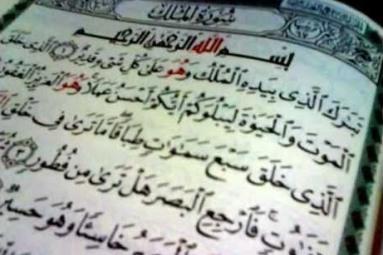 سُورَةُ المُلْكِ
بِسْمِ اللهِ الرَّحْمٰنِ الرَّحِيْمِ
تَبٰرَكَ الَّذِى بِيَدِهِ المُلْكُ وَهُوَ عَلىٰ كُلِّ شَىْءٍ قَدِيْرٌ ۝١ الَّذِى خَلَقَ
المَوْتَ وَالحَيٰوةَ لِيَبْلُوَكُمْ أَيُّكُمْ أَحْسَنُ عَمَلًا وَهُوَ العَزِيْزُ الغَفُوْرُ
الَّذِى خَلَقَ سَبْعَ سَمٰوٰتٍ طِبَاقًا مَا تَرىٰ فِى خَلْقِ
فَارْجِعِ البَصَرَ هَلْ تَرىٰ مِنْ فُطُوْرٍ ۝٣
البَصَرُ خَاسِئًا وَهُوَ حَسِيْرٌ